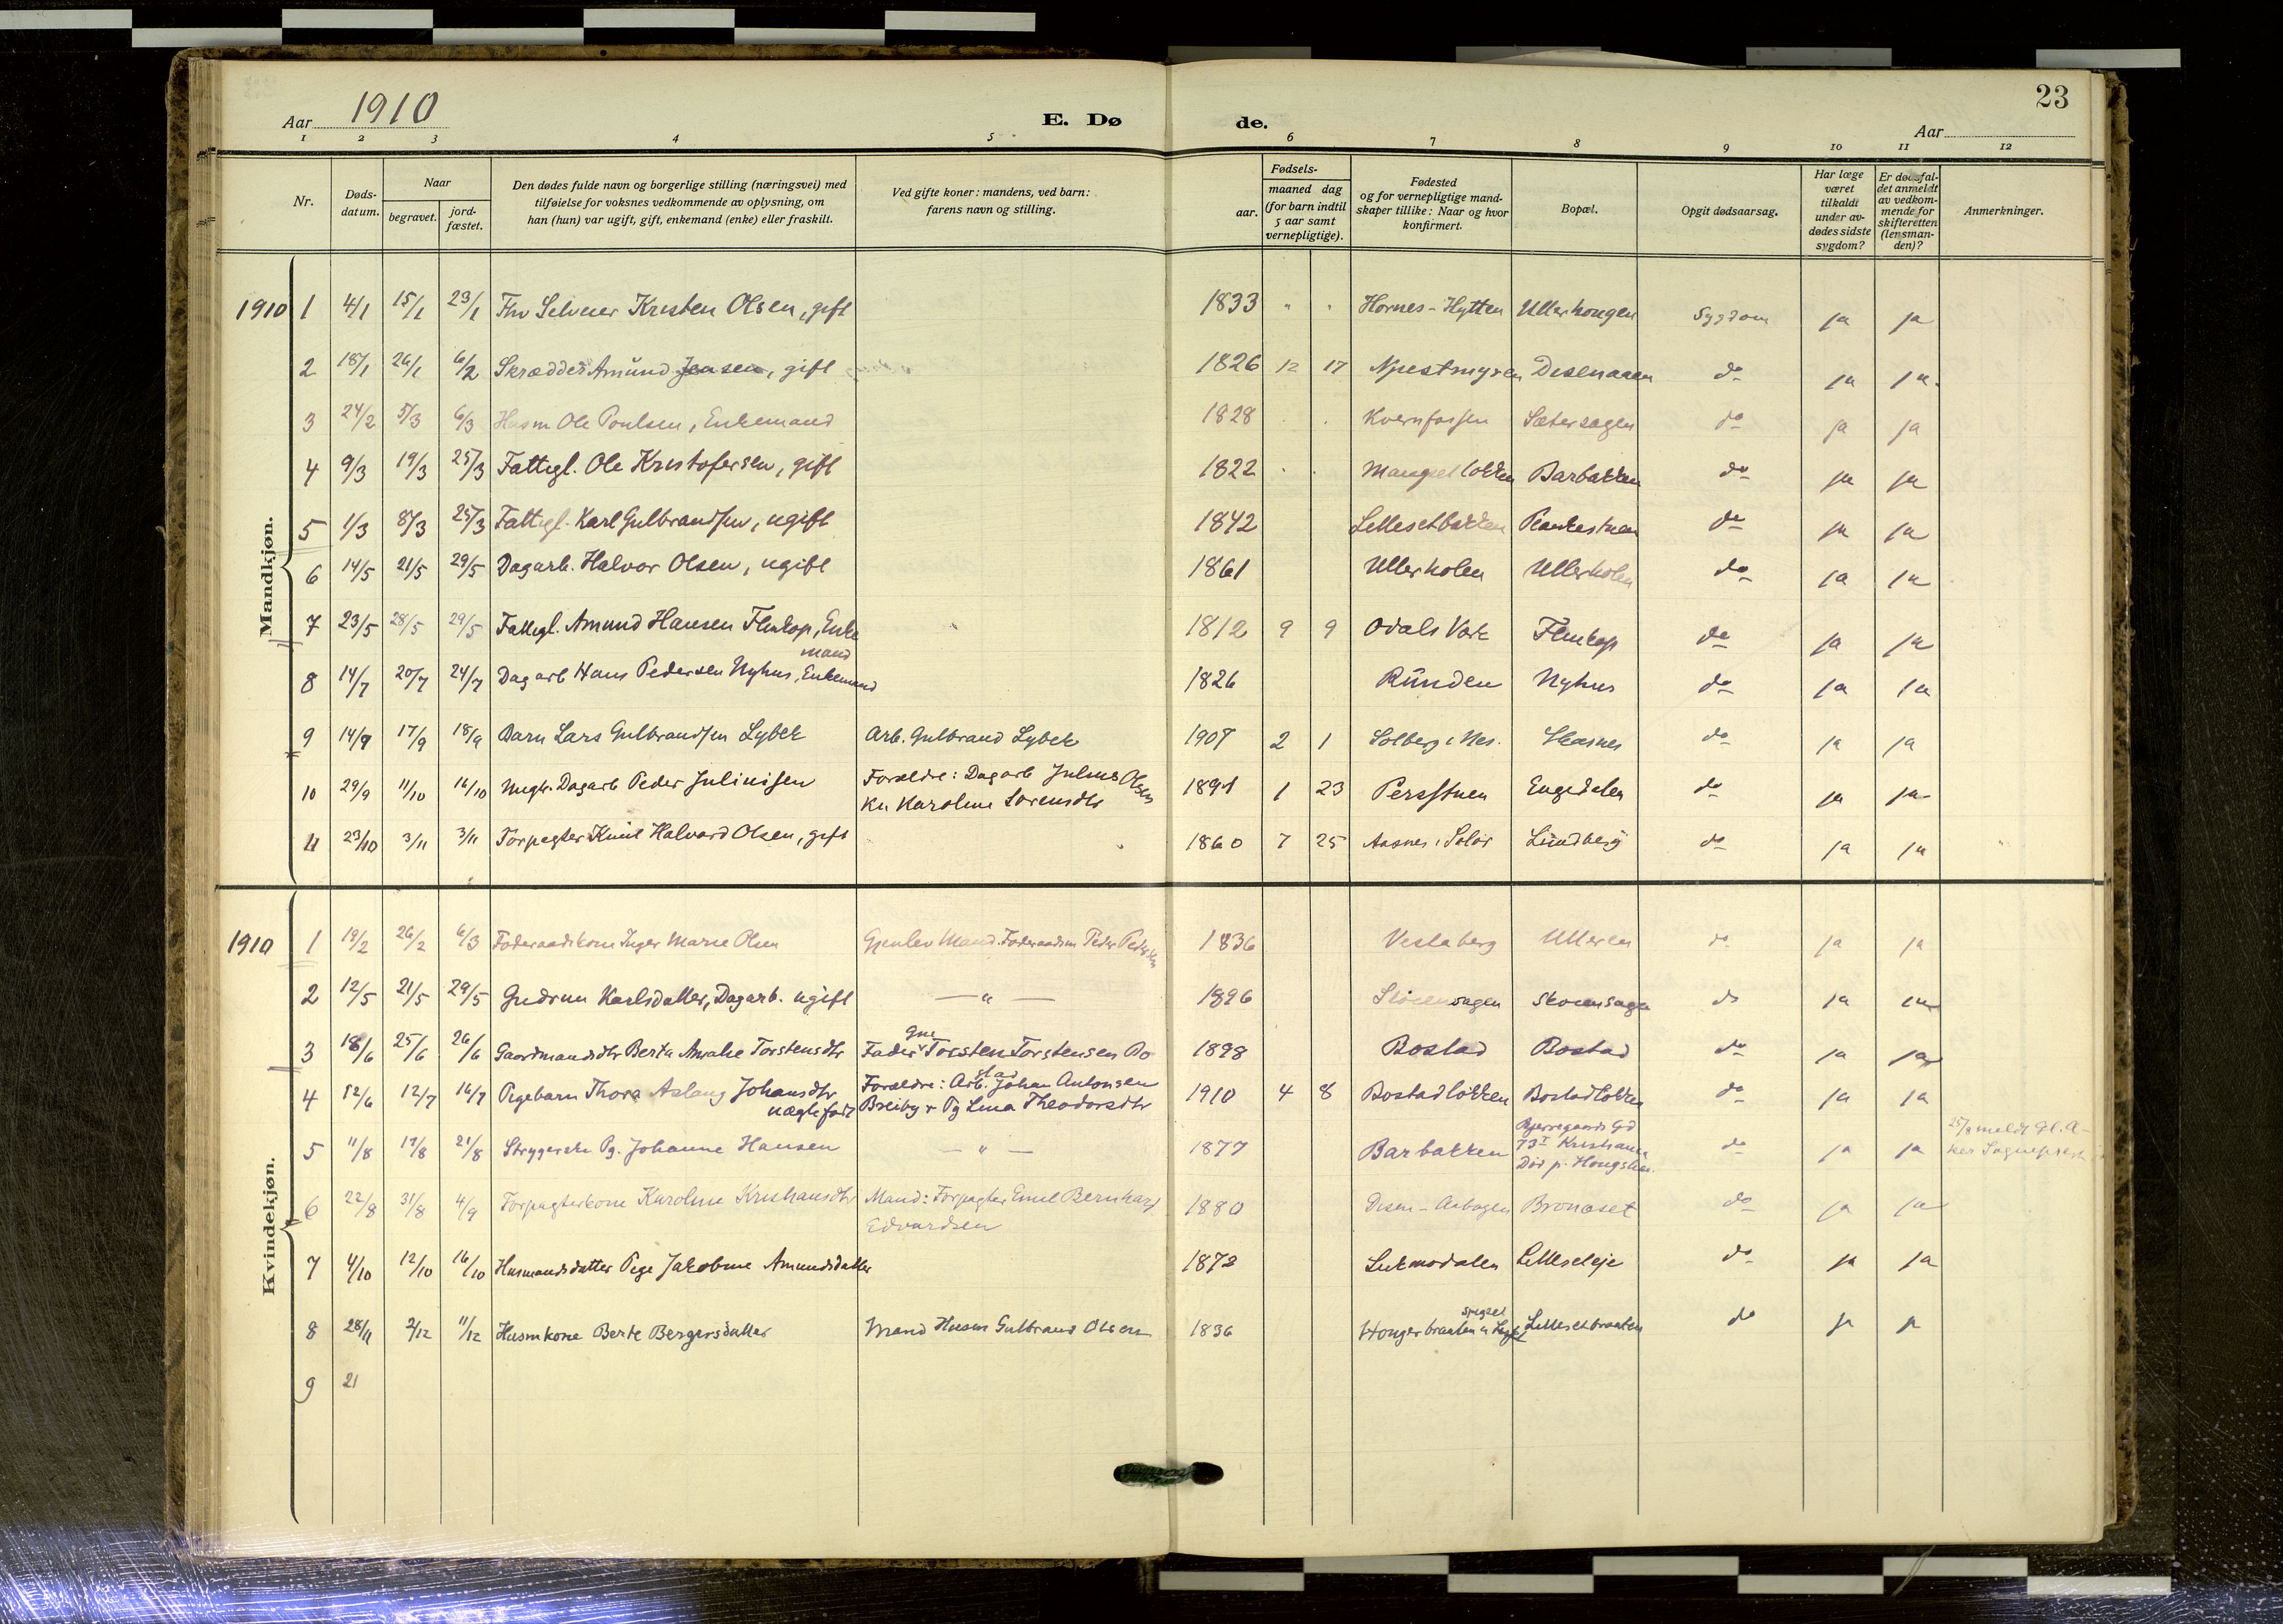 Aar 1910
E. Døde.
Aar
23
1 2 3 4 5 6 7 8 9 10 11 12
Nr.
Døds-datum.
Naar
begravet.
jord-fæstet.
Den dødes fulde navn og borgerlige stilling (næringsvei) med
tilføielse for voksnes vedkommende av oplysning, om
han (hun) var ugift, gift, enkemand (enke) eller fraskilt.
Ved gifte koner: mandens, ved barn:
farens navn og stilling.
Fødsels-
aar.
maaned dag
(for barn indtil
5 aar samt
vernepligtige).
Fødested
og for vernepligtige mand-
skaper tillike: Naar og hvor
konfirmert.
Bopæl.
Opgit dødsaarsag.
Har læge
været
tilkaldt
under av-
dødes sidste
sygdom?
Er dødsfal-
det anmeldt
av vedkom-
mende for
skifteretten
(lensman-
den)?
Anmerkninger.
Mandkjøn.
1910 1 4/1 15/1 23/1 Fhv Selveier Kristen Olsen, gift 1833 " " Hornes-Hytten Ullerhougen Sygdom ja ja
2 18/1 26/1 6/2 Skrædder Amund Jensen, gift 1826 12 17 Disenaaen do ja ja
3 24/2 5/3 6/3 Husm Ole Poulsen, Enkemand 1828 Kvernfossen Sætersagen do ja ja
4 9/3 19/3 25/3 Fattigl. Ole Kristofersen, gift 1822 Barbakken do ja ja
5 1/3 8/3 25/3 Fattigl. Karl Gulbrandsen, ugift 1842 Lillesetbakken Plankestuen do ja ja
6 14/5 21/5 29/5 Dagarb. Halvor Olsen, ugift 1861 Ullerholen Ullerholen do ja ja
7 23/5 28/5 29/5 Fattigl. Amund Hansen Flintop, Enke
mand 1812 9 9 Odals Værk Flintop do ja ja
8 14/7 20/7 24/7 Dagarb Hans Pedersen Nyhus, Enkemand 1826 Runden Nyhus do ja ja
9 14/9 17/9 18/9 Barn Lars Gulbrandsen Lybek Arb. Gulbrand Lybek 1907 2 1 Solberg i Nes. Skasnes do ja ja
10 29/9 11/10 16/10 Ungk. Dagarb Peder Julinisen Forældre: Dagarb Julius Olsen
Ku Karoline Sorensdtr 1891 1 23 Persstuen Engedalen do ja ja
11 23/10 3/11 3/11 Forpagter Knut Halvard Olsen, gift 1860 7 25 Aasnes i Solør Lundberg do ja ja
Kvindekjøn.
1910 1 19/2 26/2 6/3 Foderaadskone Inger Marie Olsen Gjenlev Mand. Foderaadsm Peder Pedersen 1836 Vestaberg Ulleren do ja ja
2 12/5 21/5 29/5 Gudrun Karlsdatter, Dagarb. ugift — " — 1896 Skoiensagen do ja ja
3 18/6 25/6 26/6 Gaardmandsdtr Berta Amalie Torstensdtr Fader Gne Torsten Torstensen Bo
stad 1898 Bostad Bostad do ja ja
4 12/6 12/7 16/7 Pigebarn Thora Aslaug Johansdtr
uægtefødt Forældre: Arb. Johan Antonsen
Breiby & Pg Lina Theodorsdtr 1910 4 8 Bostadløkken Bostadløkken do ja ja
5 11/8 17/8 21/8 Strygerske Pg. Johanne Hansen — " — 1877 Barbakken Bjerregaards Gd
73 I Kristiania
Død p. Hougsten do ja ja 25/8 meldt Gl. A-
ker Sogneprest
6 22/8 31/8 4/9 Forpagterkone Karoline Kristiansdtr Mand: Forpagter Emil Bernhard
Edvardsen 1880 Disen-Aabogen Bronaset do ja ja
7 4/10 12/10 16/10 Husmandsdatter Pige Jakobine Amundsdatter 1872 Lukmodalen Lilleseteje do ja ja
8 28/11 2/12 11/12 Husmkone Berte Bergersdatter Mand Husm Gulbrand Olsen 1836 Hougerbraaten Lillesetbraaten do ja ja
9 21